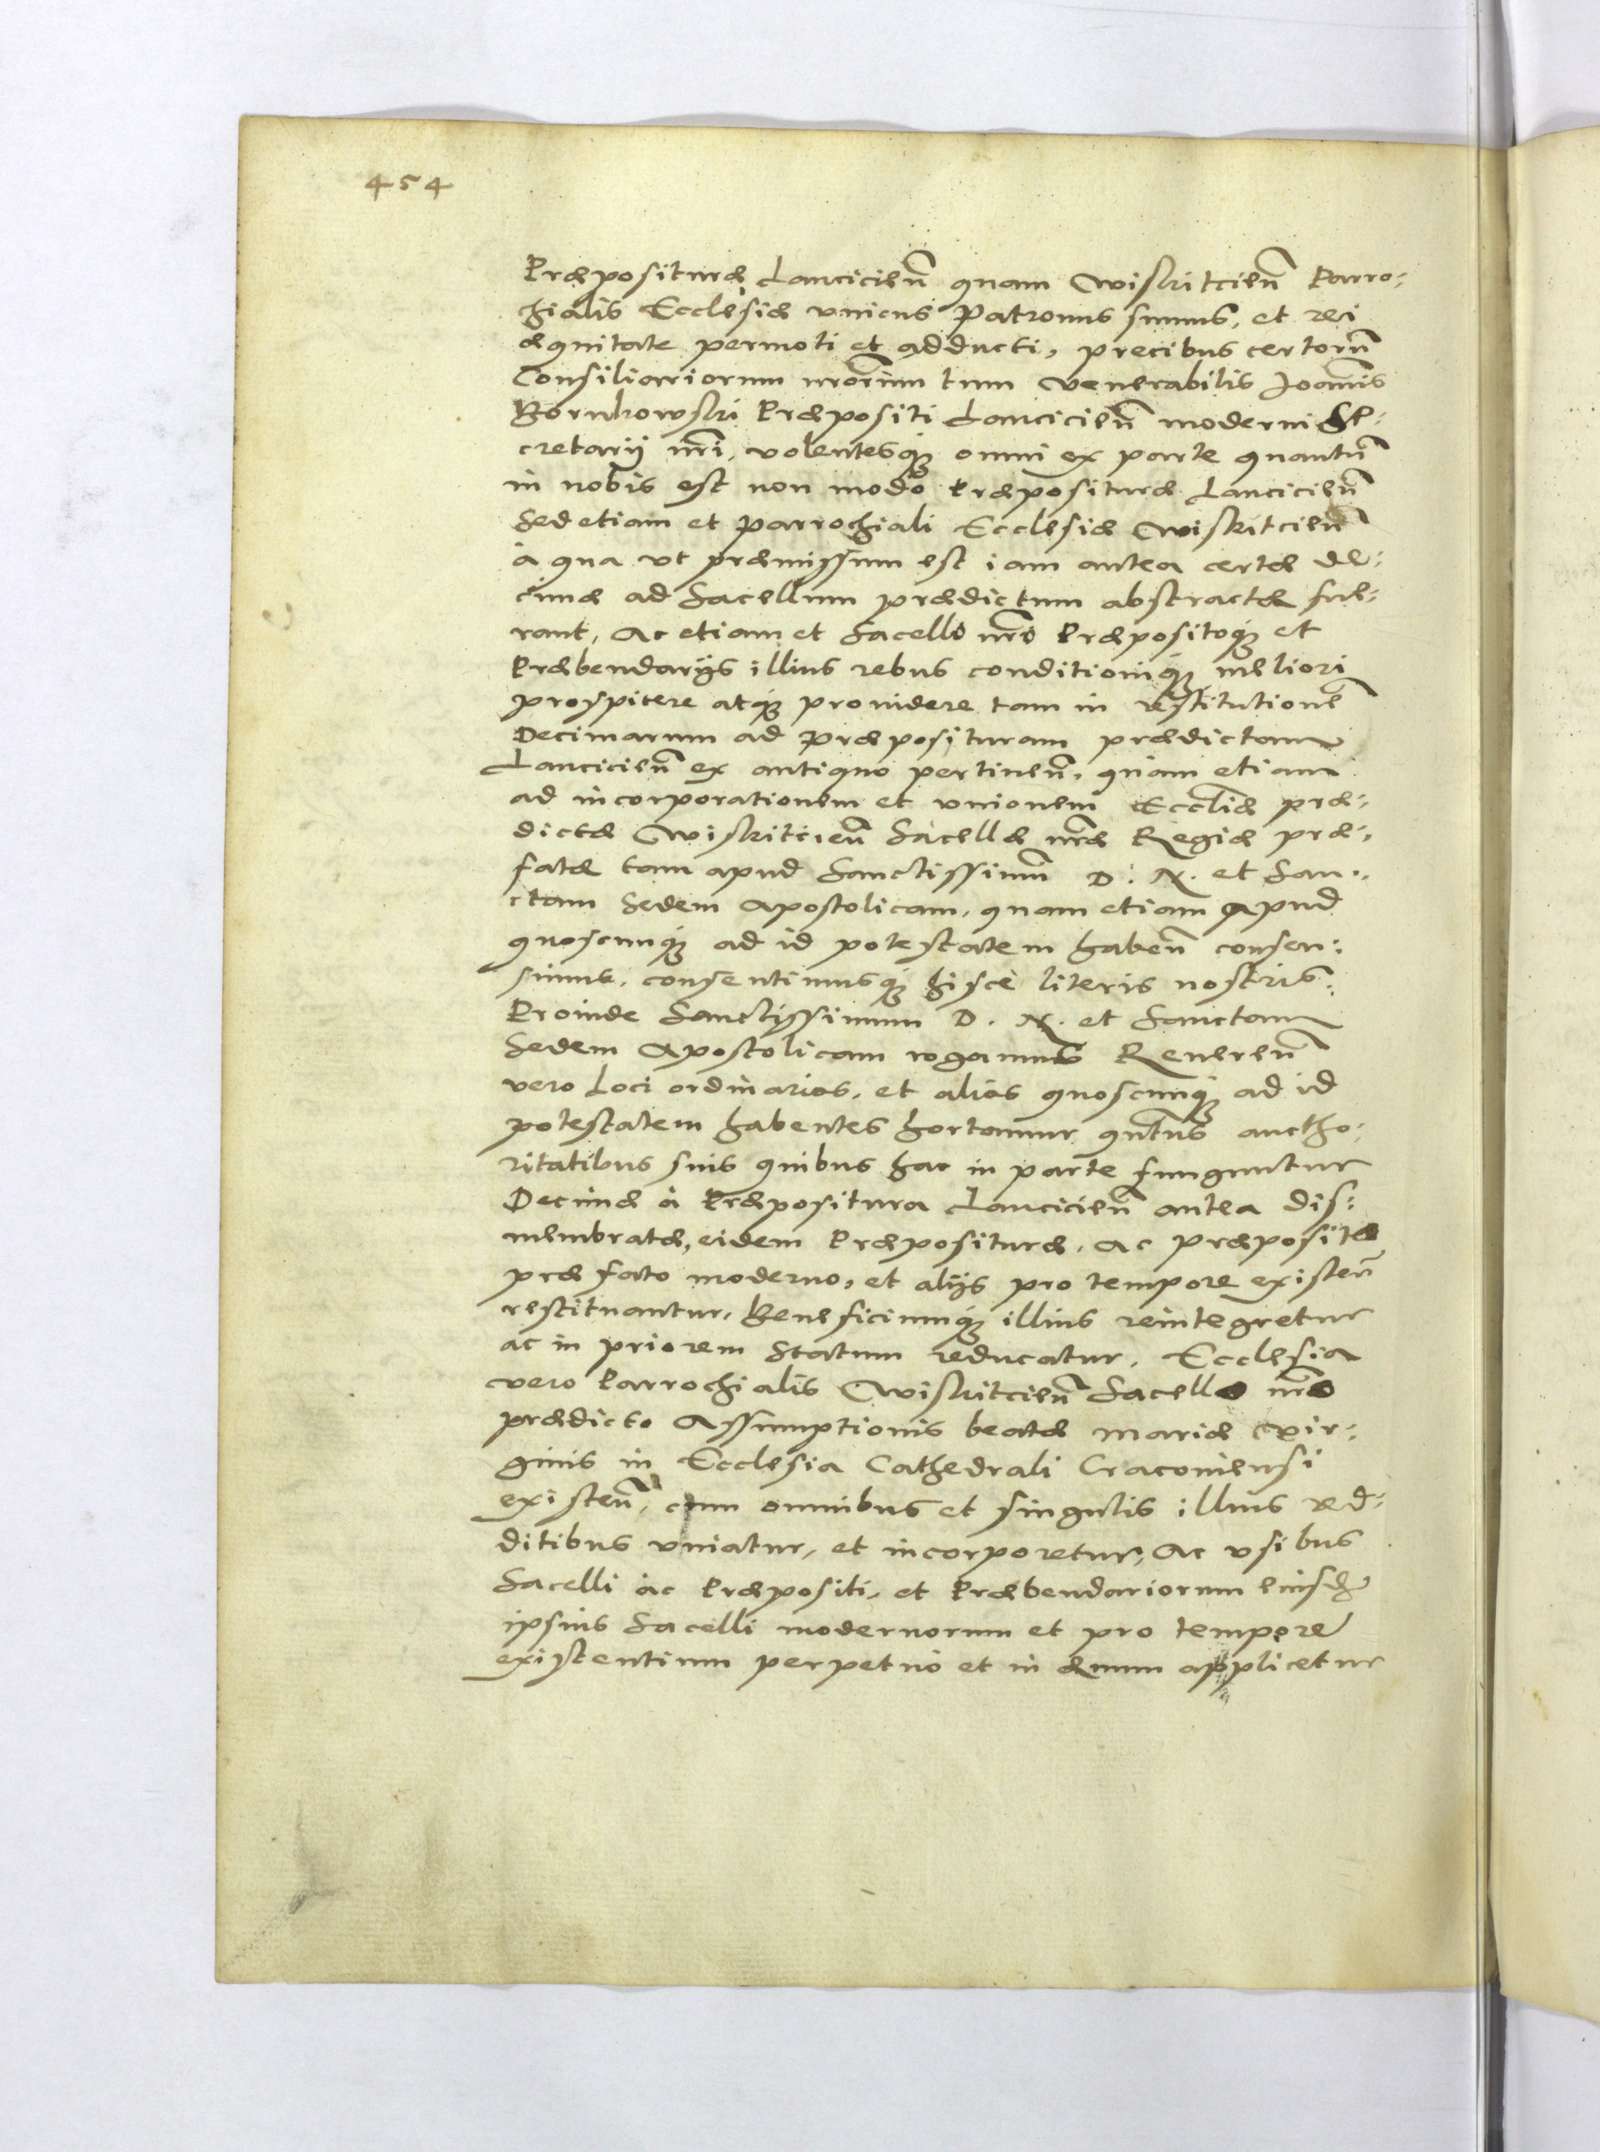 454
Præpositurę Lancicien̄ quam Wiskitcien̄ Parro-
chialis Ecclesiæ vnicus Patronus sumus, et rei
æquitate permoti et adducti, precibus certorū
Consiliariorum nrōrum tum Venerabilis Joannis
Bornkowski Præpositi Lancicien̄ moderni Se-
cretarij nrī, volentesq́ꝫ omni ex parte quantū
in nobis est non modo Præposituræ Lanciciēn
sed etiam et Parrochiali Ecclesiæ Wiskitcien̄
à qua vt præmissum est iam antea certæ de-
cimæ ad Sacellum prædictum abstractæ fue-
rant, Ac etiam et Sacello nrō Præpositoq́ꝫ et
Præbendarijs illius rebus conditioniq́ꝫ meliori
prospicere atq́ꝫ prouidere tam in restitutionē
Decimarum ad Præposituram prædictam
Lanciciēn ex antiquo pertinen̄, quam etiam
ad incorporationem et vnionem Eccliæ præ-
dictæ Wiskitcien̄ Sacellæ nræ Regiæ præ-
fatæ tam apud Sanctissimū D. N. et San-
ctam Sedem Apostolicam, quam etiam apud
quoscunq́ꝫ ad id potestatem haben̄ consen-
simus, consentimusq́ꝫ hisce literis nostris.
Proinde Sanctissimum D. N. et Sanctam
Sedem Apostolicam rogamus Reueren̄
vero Loci ordinarios, et alios quoscunq́ꝫ ad id
potestatem habentes hortamur qntus auctho-
ritatibus suis quibus hac in parte funguntur
Decimæ à Præpositura Lanciciēn antea dis-
membratæ, eidem Præpositurę, Ac Præposito
præfato moderno, et alijs pro tempore existen̄
restituantur, Beneficiumq́ꝫ illius reintegretur
ac in priorem Statum reducatur, Ecclesia
vero Parrochialis Wiskitcien̄ Sacello nrō
prædicto Assumptionis beatæ Mariæ Vir-
ginis in Ecclesia Cathedrali Cracouiensi
existen̄, cum omnibus et singulis illius red-
ditibus vniatur, et incorporetur, Ac vsibus
Sacelli ac Præpositi, et Præbendariorum eiusdē
ipsius Sacelli modernorum et pro tempore
existentium perpetuò et in æuum applicetur